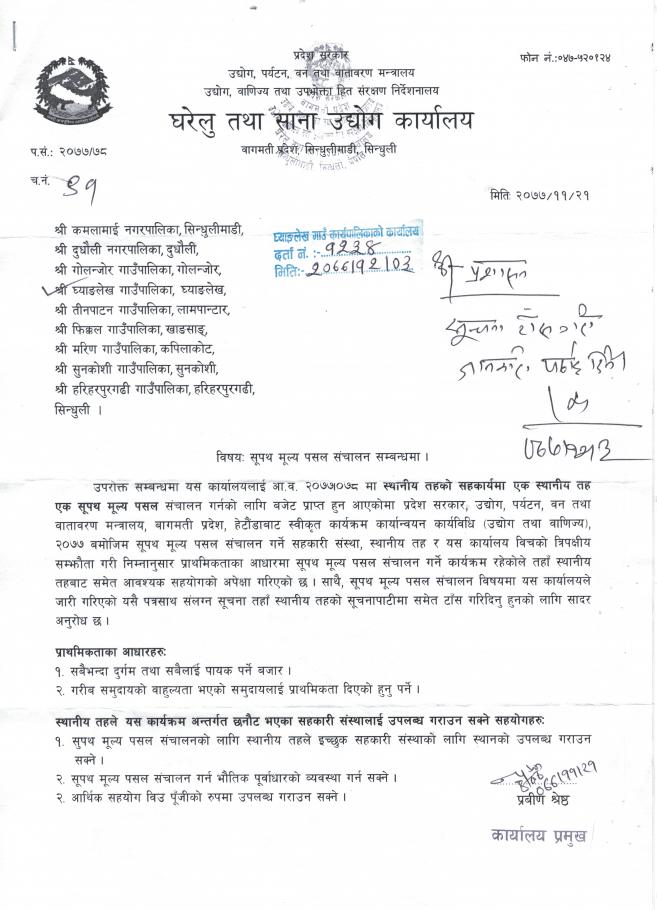 प्रदेश सरकार
फोन नं.:०४७-५२०१२४
उद्योग, पर्यटन, वन तथा वातावरण मन्त्रालय
उद्योग, वाणिज्य तथा उपभोक्ता हित संरक्षण निर्देशनालय
घरेलु तथा साना उद्योग कार्यालय
बागमती प्रदेश, सिन्धुलीमाडी, सिन्धुली
प.सं.: २०७७/७८
च.नं. ३९
मितिः २०७७/११/२१
श्री कमलामाई नगरपालिका, सिन्धुलीमाडी,
श्री दुधौली नगरपालिका, दुधौली,
श्री गोलन्जोर गाउँपालिका, गोलन्जोर,
श्री घ्याङलेख गाउँपालिका, घ्याङलेख,
श्री तीनपाटन गाउँपालिका, लामपान्टार,
श्री फिक्कल गाउँपालिका, खाङसाङ,
श्री मरिण गाउँपालिका, कपिलाकोट,
श्री सुनकोशी गाउँपालिका, सुनकोशी,
श्री हरिहरपुरगढी गाउँपालिका, हरिहरपुरगढी,
सिन्धुली ।
घ्याङलेख गाउँ कार्यपालिकाको कार्यालय
दर्ता नं. :- १२३४
मिति:- २०७७१२।०३
श्री प्रशासन
सूचना टाँस गरी
जानकारी
विषयः सूपथ मूल्य पसल संचालन सम्बन्धमा ।
उपरोक्त सम्बन्धमा यस कार्यालयलाई आ.व. २०७७।०७८ मा स्थानीय तहको सहकार्यमा एक स्थानीय तह
एक सूपथ मूल्य पसल संचालन गर्नको लागि बजेट प्राप्त हुन आएकोमा प्रदेश सरकार, उद्योग, पर्यटन, वन तथा
वातावरण मन्त्रालय, बागमती प्रदेश, हेटौंडाबाट स्वीकृत कार्यक्रम कार्यान्वयन कार्यविधि (उद्योग तथा वाणिज्य),
२०७७ बमोजिम सूपथ मूल्य पसल संचालन गर्ने सहकारी संस्था, स्थानीय तह र यस कार्यालय विचको त्रिपक्षीय
सम्झौता गरी निम्नानुसार प्राथमिकताका आधारमा सूपथ मूल्य पसल संचालन गर्ने कार्यक्रम रहेकोले तहाँ स्थानीय
तहबाट समेत आवश्यक सहयोगको अपेक्षा गरिएको छ । साथै, सूपथ मूल्य पसल संचालन विषयमा यस कार्यालयले
जारी गरिएको यसै पत्रसाथ संलग्न सूचना तहाँ स्थानीय तहको सूचनापाटीमा समेत टाँस गरिदिनु हुनको लागि सादर
अनुरोध छ ।
प्राथमिकताका आधारहरुः
१. सबैभन्दा दुर्गम तथा सबैलाई पायक पर्ने बजार ।
२. गरीब समुदायको बाहुल्यता भएको समुदायलाई प्राथमिकता दिएको हुनु पर्ने ।
स्थानीय तहले यस कार्यक्रम अन्तर्गत छनौट भएका सहकारी संस्थालाई उपलब्ध गराउन सक्ने सहयोगहरुः
१. सुपथ मूल्य पसल संचालनको लागि स्थानीय तहले इच्छुक सहकारी संस्थाको लागि स्थानको उपलब्ध गराउन
सक्ने ।
२. सूपथ मूल्य पसल संचालन गर्न भौतिक पूर्वाधारको व्यवस्था गर्न सक्ने ।
२. आर्थिक सहयोग विउ पूँजीको रुपमा उपलब्ध गराउन सक्ने ।
प्रबीण श्रेष्ठ
कार्यालय प्रमुख